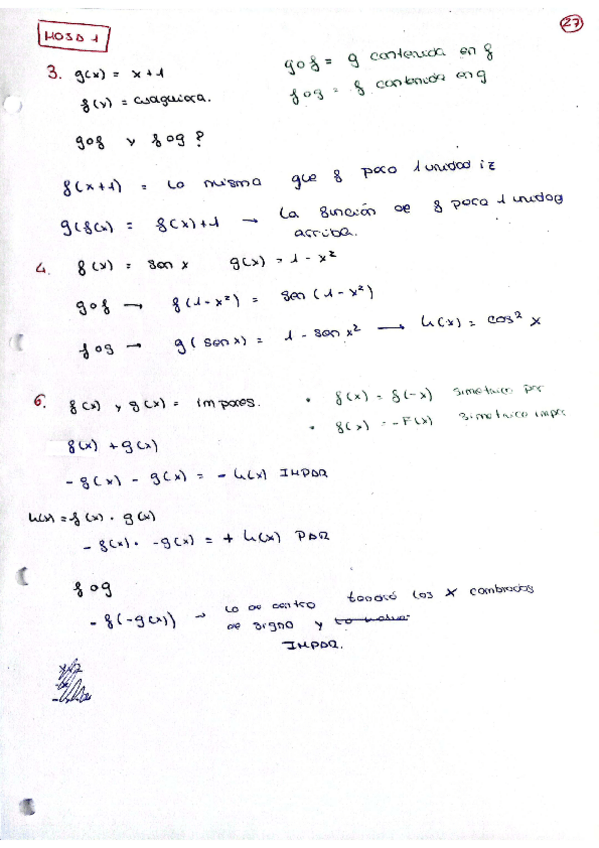 HOJA 1
27
3. g(x) = x+1
f(x) = cualquiera.
gof y fog?
gof = g contenida en f
fog = f contenida en g
f(x+1) = Lo mismo que f pero 1 unidad iz
g(f(x) = f(x)+1 → La función de f pero 1 unidad
arriba.
4. f(x) = sen x g(x) = 1 - x²
gof → f(1-x²) = sen(1-x²)
fog → g(sen x) = 1 - sen x² → h(x) = cos² x
6. f(x) y g(x) = impares.
• f(x) = f(-x) simetrico par
• f(x) = -F(x) simetrico impar
f(x) + g(x)
- f(x) - g(x) = - h(x) IMPAR
h(x) = f(x) · g(x)
- f(x) · -g(x) = + h(x) PAR
fog
- f(-g(x)) → Lo de dentro tendrá los x cambiados
de signo y
IMPAR.